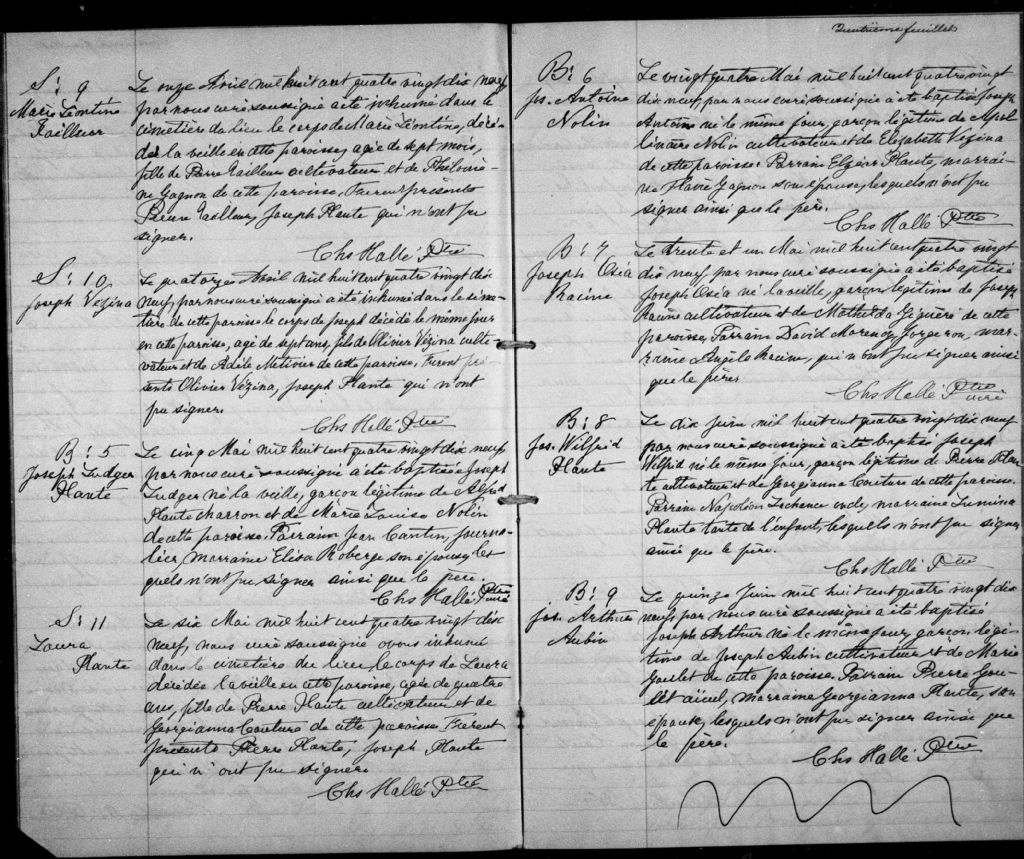 S: 9
Marie Léontine
Tailleur
Le onze Avril mil huit cent quatre vingt dix neuf
par nous curé soussigné a été inhumé dans le
cimetière du lieu le corps de Marie Léontine, décé-
dée la veille en cette paroisse, agée de sept mois,
fille de Pierre Tailleur cultivateur et de Philomè-
ne Gagnon de cette paroisse, Furent presents
Pierre Tailleur, Joseph Plante qui n'ont pu
signer.
Chs Hallé Ptre
S: 10
Joseph Vézina
Le quatorze Avril mil huit cent quatre vingt dix
neuf, par nous curé soussigné a été inhumé dans le cime-
tière de cette paroisse le corps de Joseph décédé le même jour
en cette paroisse, agé de sept ans, fils de Olivier Vézina culti-
vateur et de Adèle Metivier de cette paroisse. Furent pré-
sents Olivier Vézina, Joseph Plante qui n'ont
pu signer.
Chs Hallé Ptre
B: 5
Joseph Ludger
Plante
Le cinq Mai mil huit cent quatre vingt dix neuf
par nous curé soussigné a été baptisé Joseph
Ludger né la veille, garçon légitime de Alfred
Plante charron et de Marie Louise Nolin
de cette paroisse. Parrain Jean Cantin, journa-
lier, marraine Elisa Roberge son épouse, les
quels n'ont pu signer ainsi que le père.
Chs Hallé Ptre
curé
S: 11
Laura
Plante
Le six Mai mil huit cent quatre vingt dix
neuf, nous curé soussigné avons inhumé
dans le cimetière du lieu le corps de Laura
décédée la veille en cette paroisse, agée de quatre
ans, fille de Pierre Plante cultivateur et de
Georgianna Couture de cette paroisse Furent
présents Pierre Plante, Joseph Plante
qui n'ont pu signer.
Chs Hallé Ptre
feuillet
B: 6
Jos. Antoine
Nolin
Le vingt quatre Mai mil huit cent quatre vingt
dix neuf, par nous curé soussigné a été baptisé Joseph
Antoine né le même jour, garçon légitime de Apol-
linaire Nolin cultivateur et de Elizabeth Vézina
de cette paroisse. Parrain Elzéar Plante, marrai-
ne Gagnon son épouse, lesquels n'ont pu
signer ainsi que le père.
Chs Hallé Ptre
B: 7
Joseph Oséa
Racine
Le trente et un Mai mil huit cent quatre vingt
dix neuf, par nous curé soussigné a été baptisé
Joseph Oséa né la veille, garçon légitime de Joseph
Racine cultivateur et de Mathilda de cette
paroisse, Parrain David forgeron, mar-
raine Angèle Racine, qui n'ont pu signer ainsi
que le père.
Chs Hallé Ptre
curé
B: 8
Jos. Wilfrid
Plante
Le dix juin mil huit cent quatre vingt dix neuf
par nous curé soussigné a été baptisé Joseph
Wilfrid né le même jour, garçon légitime de Pierre Plan-
te cultivateur et de Georgianna Couture de cette paroisse.
Parrain Napoléon Lachance oncle, marraine
Plante tante de l'enfant, lesquels n'ont pu signer
ainsi que le père.
Chs Hallé Ptre
B: 9
Jos. Arthur
Aubin
Le quinze Juin mil huit cent quatre vingt dix
neuf par nous curé soussigné a été baptisé
Joseph Arthur né le même jour, garçon légi-
time de Joseph Aubin cultivateur et de Marie
Goulet de cette paroisse. Parrain Pierre Gou-
let aïeul, marraine Georgianna Plante, son
épouse, lesquels n'ont pu signer ainsi que
le père.
Chs Hallé Ptre